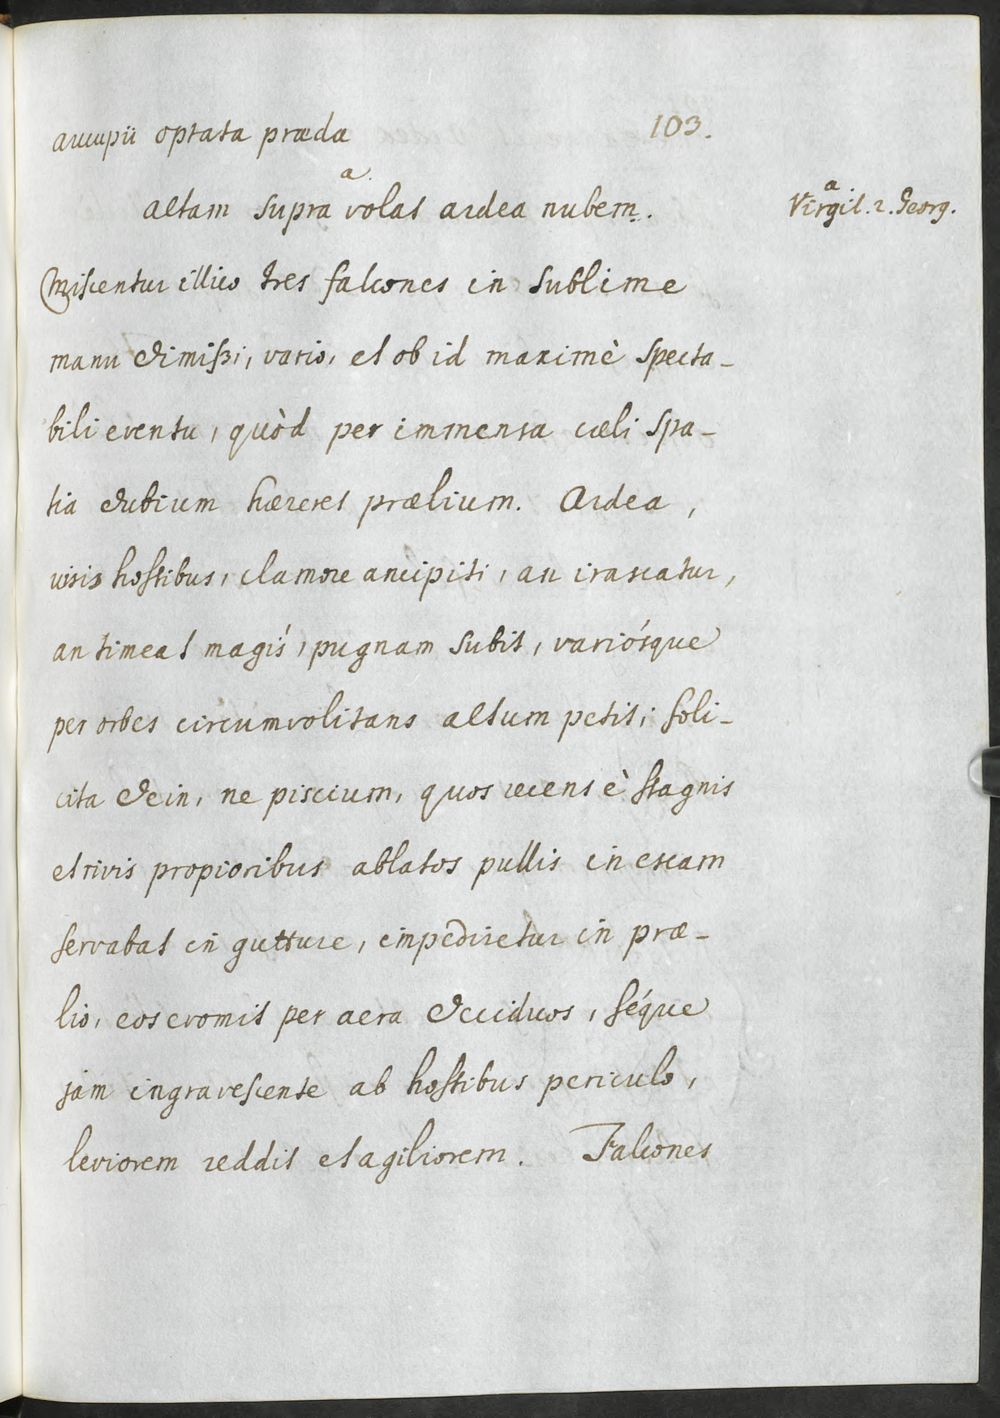 aucupii optata præda
103.
a.
altam supra volat ardea nubem.
a
Virgil. 2. Georg.
Miscentur illico tres falcones in sublime
manu dimißi, vario, et ob id maximè specta-
bili eventu, quòd per immensa cæli spa-
tia dubium hæreret prælium. Ardea,
visis hostibus, clamore ancipiti, an irascatur,
an timeat magis, pugnam subit, variósque
per orbes circumvolitans altum petit; soli-
cita dein, ne piscium, quos recens è stagnis
et rivis propioribus ablatos pullis in escam
servabat in gutture, impediretur in præ-
lio, eos evomit per aera deciduos, séque
jam ingravescente ab hostibus periculo,
leviorem reddit et agiliorem. Falcones